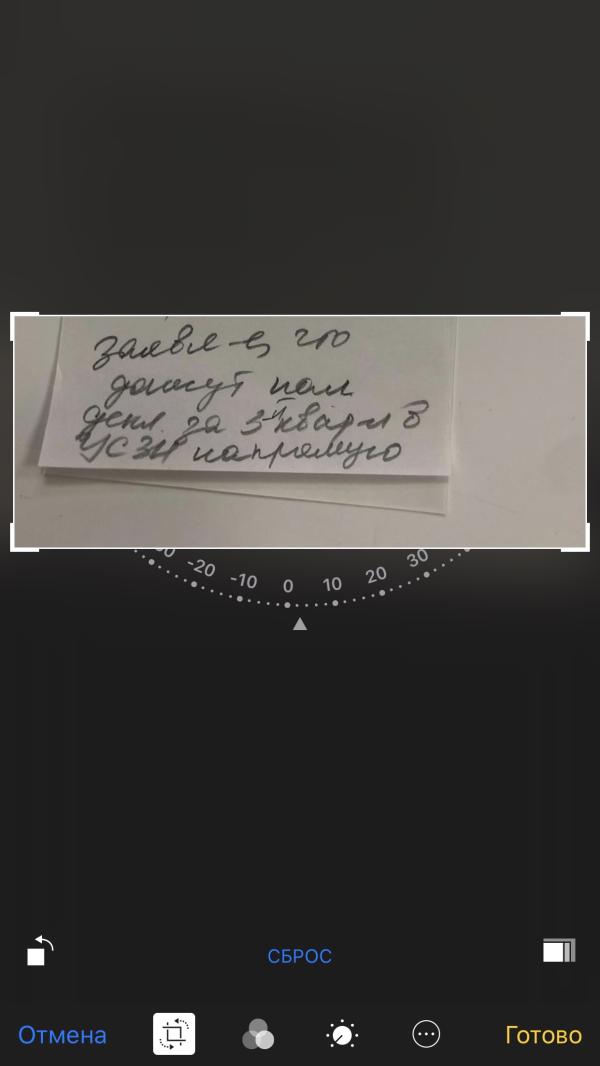 заявл-е, что
дадут нам
декл. за 3й кварт-л в
УСЗН напрямую
-20 -10 0 10 20 30
СБРОС
Отмена Готово